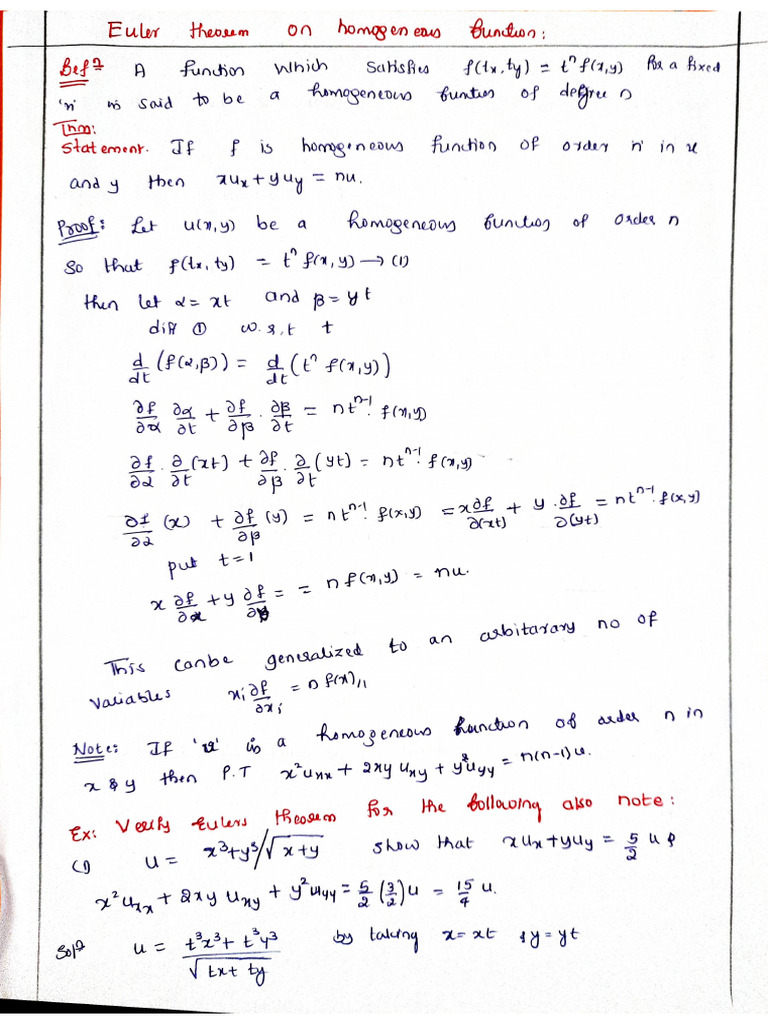 Euler theorem on homogeneous function:
Defn A function which satisfies f(tx,ty) = tⁿ f(x,y) for a fixed
'n' is said to be a homogeneous funtion of degree n
Thm:
Statement. If f is homogeneous function of order n' in x
and y then xuₓ + yu_y = nu.
Proof: Let u(x,y) be a homogeneous function of order n
So that f(tx,ty) = tⁿ f(x,y) → (1)
then let α = xt and β = yt
diff ① w.r.t t
d/dt (f(α,β)) = d/dt (tⁿ f(x,y))
∂f/∂α ∂α/∂t + ∂f/∂β . ∂β/∂t = ntⁿ⁻¹. f(x,y)
∂f/∂α . ∂/∂t (xt) + ∂f/∂β . ∂/∂t (yt) = ntⁿ⁻¹. f(x,y)
∂f/∂α (x) + ∂f/∂β (y) = ntⁿ⁻¹. f(x,y) = x∂f/∂(xt) + y.∂f/∂(yt) = ntⁿ⁻¹. f(x,y)
put t=1
x ∂f/∂x + y ∂f/∂y = = n f(x,y) = nu.
This canbe generalized to an arbitarary no of
variables xᵢ ∂f/∂xᵢ = n f(x)//
Note: If 'u' is a homogeneous function of order n in
x & y then P.T x²uₓₓ + 2xy uₓy + y²u_yy = n(n-1)u.
Ex: Verify Eulers theorem for the following also note:
(1) u = x³+y³/√x+y show that xuₓ+yu_y = 5/2 u &
x²uₓₓ + 2xy uₓy + y²u_yy = 5/2 (3/2)u = 15/4 u.
Soln u = t³x³ + t³y³/√tx+ty by taking x = xt & y = yt